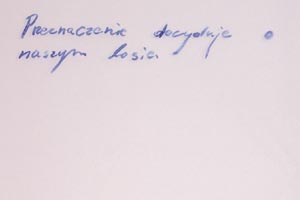 Przeznaczenie decyduje o
naszym losie.